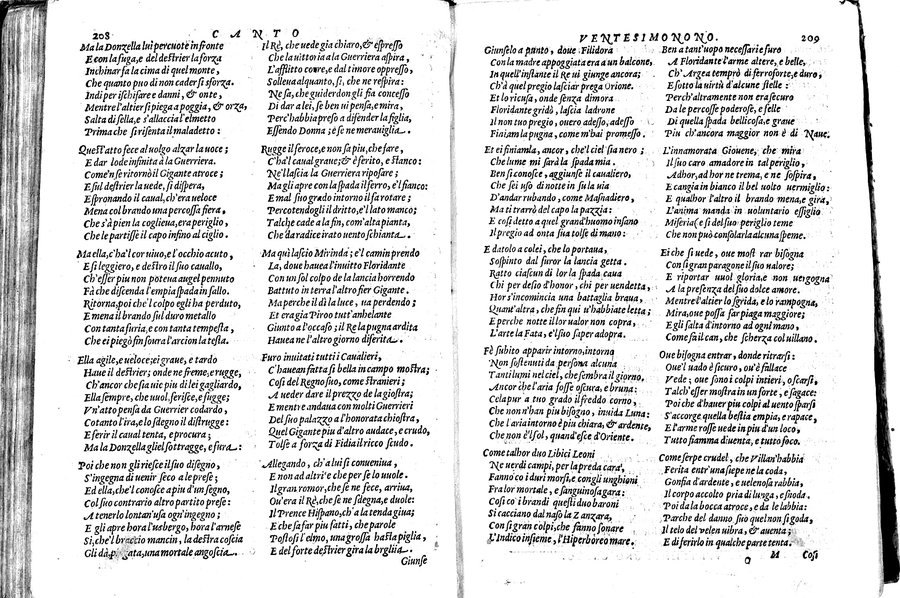 208 CANTO
Ma la Donzella lui percuote in fronte
E con la fuga, e del destrier la forza
Inchinar fa la cima di quel monte,
Che quanto puo di non cader si sforza.
Indi per ischifare e danni, & onte,
Mentre l'altier si piega a poggia, & orza,
Salta di sella, e s'allaccia l'elmetto
Prima che si risenta il maladetto:
Quest' atto fece al uolgo alzar la uoce;
E dar lode infinita à la Guerriera.
Come'n se ritornò il Gigante atroce;
E sul destrier la uede, si dispera,
E spronando il caual, ch'era ueloce
Mena col brando una percossa fiera,
Che s'à pien la coglieua, era periglio,
Che le partisse il capo infino al ciglio.
Ma ella, c'ha'l cor uiuo, e l'occhio acuto,
E si leggiero, e destro il suo cauallo,
Ch'esser piu non potea augel pennuto
Fà che discenda l'empia spada in fallo.
Ritorna, poi che'l colpo egli ha perduto,
E mena il brando sul duro metallo
Con tanta furia, e con tanta tempesta,
Che ei piegò fin soura l'arcion la testa.
Ella agile, e ueloce; ei graue, e tardo
Haue il destrier; onde ne freme, e rugge,
Ch'ancor che sia uie piu di lei gagliardo,
Ella sempre, che uuol, ferisce, e fugge;
Vn'atto pensa da Guerrier codardo,
Cotanto l'ira, e lo sdegno il distrugge:
E ferir il caual tenta, e procura;
Ma la Donzella gliel sottragge, e fura:
Poi che non gli riesce il suo disegno,
S'ingegna di uenir seco a le prese;
Ed ella, che'l conosce a piu d'un segno,
Col suo contrario altro partito prese:
A tenerlo lontan' usa ogn'ingegno;
E gli apre hora l'usbergo, hora l'arnese
Si, che'l braccio mancin, la destra coscia
Gli dà piagata, una mortale angoscia.
Il Rè, che uede gia chiaro, & espresso
Che la uittoria a la Guerriera aspira,
L'afflitto core, e dal timore oppresso,
Solleua alquanto, si, che ne respira:
Ne sa, che guiderdon gli sia concesso
Di dar a lei, se ben ui pensa, e mira,
Perc'habbia preso a difender la figlia,
Essendo Donna; e se ne merauiglia.
Rugge il feroce, e non sa piu, che fare,
C'ha'l caual graue; & è ferito, e stanco:
Ne'l lascia la Guerriera riposare;
Ma gli apre con la spada il ferro, e'l fianco:
E mal suo grado intorno il fa rotare;
Percotendogli il dritto, e'l lato manco;
Tal che cade a la fin, com'alta pianta,
Che da radice irato uento schianta.
Ma qui lascio Mirinda; e'l camin prendo
La, doue hauea l'inuitto Floridante
Con un sol colpo de la lancia horrendo
Battuto in terra l'altro fier Gigante.
Ma perche il dì la luce, ua perdendo;
Et era gia Piroo tutt' anhelante
Giunto a l'occaso; il Re la pugna ardita
Hauea ne l'altro giorno differita.
Furo inuitati tutti i Cauallieri,
C'haueano fatta si bella in campo mostra;
Cosi del Regno suo, come stranieri;
A ueder dare il prezzo de la giostra;
E mentre andaua con molti Guerrieri
Del suo palazzo a l'honorata chiostra,
Quel Gigante piu d'altro audace, e crudo,
Tolse a forza di Fidia il ricco scudo.
Allegando, ch'a lui si conueniua,
E non ad altri e che per se lo uuole.
Il gran romor, che se ne fece, arriua,
Ou'era il Rè, che se ne sdegna, e duole:
Il Prence Hispano, ch'à la tenda giua;
E che sa far piu fatti, che parole
Postosi l'elmo, una grossa hasta piglia,
E del forte destrier gira la briglia.
Giunse
VENTESIMONONO. 209
Giunselo a punto, doue Filidora
Con la madre appoggiata era a un balcone,
In quell'instante il Re ui giunge ancora;
Ch'à quel pregio lasciar prega Orione.
Et lo ricusa, onde senza dimora
Floridante gridò, lascia ladrone
Il non tuo pregio, ouero adesso, adesso
Finiam la pugna, come m'hai promesso.
Et ei finiamla, ancor, che'l ciel sia nero;
Che lume mi sarà la spada mia.
Ben si conosce, aggiunse il caualiero,
Che sei uso di notte in su la uia
D'andar rubando, come Masnadiero,
Ma ti trarrò del capo la pazzia:
E cosi detto a quel grand'huomo insano
Il pregio ad onta sua tolse di mano:
E datolo a colei, che lo portaua,
Sospinto dal furor la lancia getta.
Ratto ciascun di lor la spada caua
Chi per desio d'honor, chi per uendetta,
Hor s'incomincia una battaglia braua,
Quant'altra, che fin qui u'habbiate letta;
E perche notte il lor ualor non copra,
L'arte la Fata, e'l suo saper adopra.
Fè subito apparir intorno, intorno
Non sostenuti da persona alcuna
Tanti lumi nel ciel, che sembra il giorno.
Ancor che l'aria fosse oscura, e bruna:
Cela pur a tuo grado il freddo corno,
Che non n'han piu bisogno, inuida Luna:
Che l'aria intorno è piu chiara, & ardente,
Che non è'l sol, quand'esce d'Oriente.
Come talhor duo Libici Leoni
Ne uerdi campi, per la preda cara,
Fanno co i duri morsi, e con gli unghioni
Fra lor mortale, e sanguinosa gara:
Cosi co i brandi questi duo baroni
Si cacciano dal naso la Zanzara,
Con si gran colpi, che fanno sonare
L'Indico insieme, e l'Hiperboreo mare.
Ben a tant'uopo necessarie furo
A Floridante l'arme altere, e belle,
Ch'Argea temprò di ferro forte, e duro,
E sotto la uirtù d'alcune stelle:
Perch'altramente non era securo
Da le percosse poderose, e felle
Di quella spada bellicosa, e graue
Piu ch'ancora maggior non è di Naue.
L'innamorata Giouene, che mira
Il suo caro amadore in tal periglio,
Adhor, ad hor ne trema, e ne sospira,
E cangia in bianco il bel uolto uermiglio:
E qualhor l'altro il brando mena, e gira,
L'anima manda in uoluntario essiglio
Misera (e si del suo periglio teme
Che non può consolarla alcuna speme.
Ei che si uede, oue mostrar bisogna
Con si gran paragone il suo ualore;
E riportar uuol gloria, e non uergogna
A la presenza del suo dolce amore.
Mentre l'altier lo sgrida, e lo rampogna,
Mira, oue possa far piaga maggiore;
E gli salta d'intorno ad ogni mano,
Come fa il can, che scherza col uillano.
Oue bisogna entrar, donde ritrarsi:
Oue'l uado è sicuro, ou'è fallace
Vede; oue sono i colpi intieri, o scarsi,
Talch'esser mostra in un forte, e sagace:
Poi che d'hauer piu colpi al uento sparsi
S'accorge quella bestia empia, e rapace,
E l'arme rosse uede in piu d'un loco;
Tutto fiamma diuenta, e tutto foco.
Come serpe crudel, che Villan' habbia
Ferita entr'una siepe ne la coda,
Gonfia d'ardente, e uelenosa rabbia,
Il corpo accolto pria dilunga, e snoda.
Poi da la bocca atroce, e da le labbia:
Par che del danno suo quel non si goda,
Il telo del velen uibra, & auenta;
E di ferirlo in qualche parte tenta.
O M Cosi